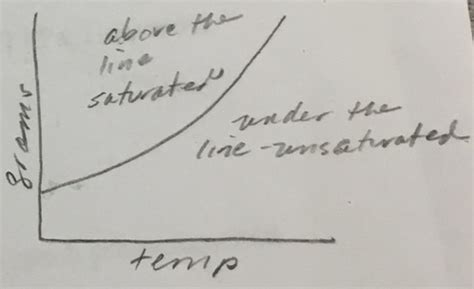 above the
line
saturated
under the
line - unsaturated
grams
temp